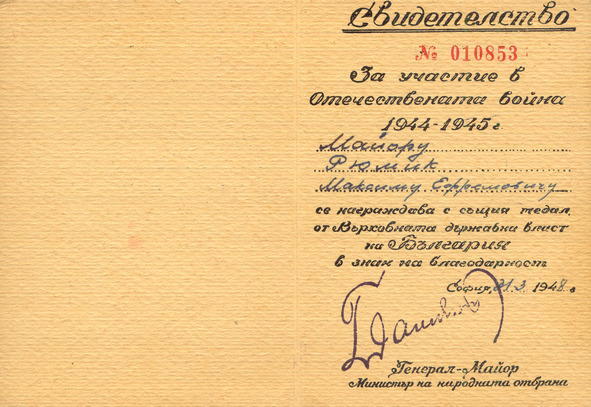 Свидетелство
№ 010853
За участие в
Отечествената война
1944-1945 г.
Майору
Рюмик
Максиму Ефремовичу
се награждава с същия медал
от Върховната държавна власт
на България
в знак на благодарност
София, 21.3. 1948 г.
Генерал-Майор
Министър на народната отбрана